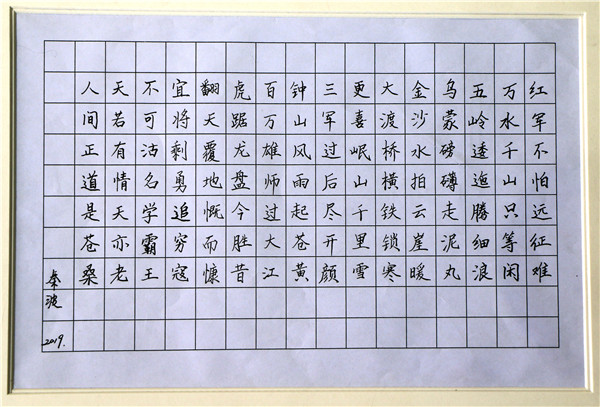 红军不怕远征难
万水千山只等闲
五岭逶迤腾细浪
乌蒙磅礴走泥丸
金沙水拍云崖暖
大渡桥横铁锁寒
更喜岷山千里雪
三军过后尽开颜
钟山风雨起苍黄
百万雄师过大江
虎踞龙盘今胜昔
翻天覆地慨而慷
宜将剩勇追穷寇
不可沽名学霸王
天若有情天亦老
人间正道是苍桑
秦波
2019.